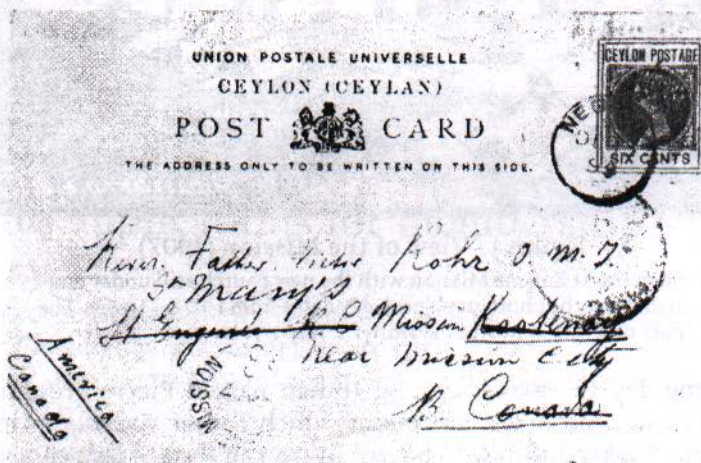 UNION POSTALE UNIVERSELLE
CEYLON (CEYLAN)
POST CARD
THE ADDRESS ONLY TO BE WRITTEN ON THIS SIDE.
CEYLON POSTAGE
SIX CENTS
NE
Father Victor Rohr O. M. I.
St Mary's
St Eugene's Mission Kootenay
near Mission City
B Canada
America
Canada
MISSION